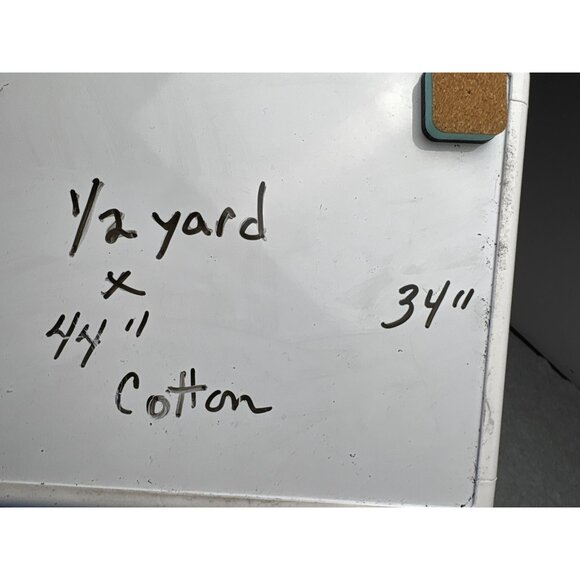 1/2 yard
x
44"
34"
Cotton